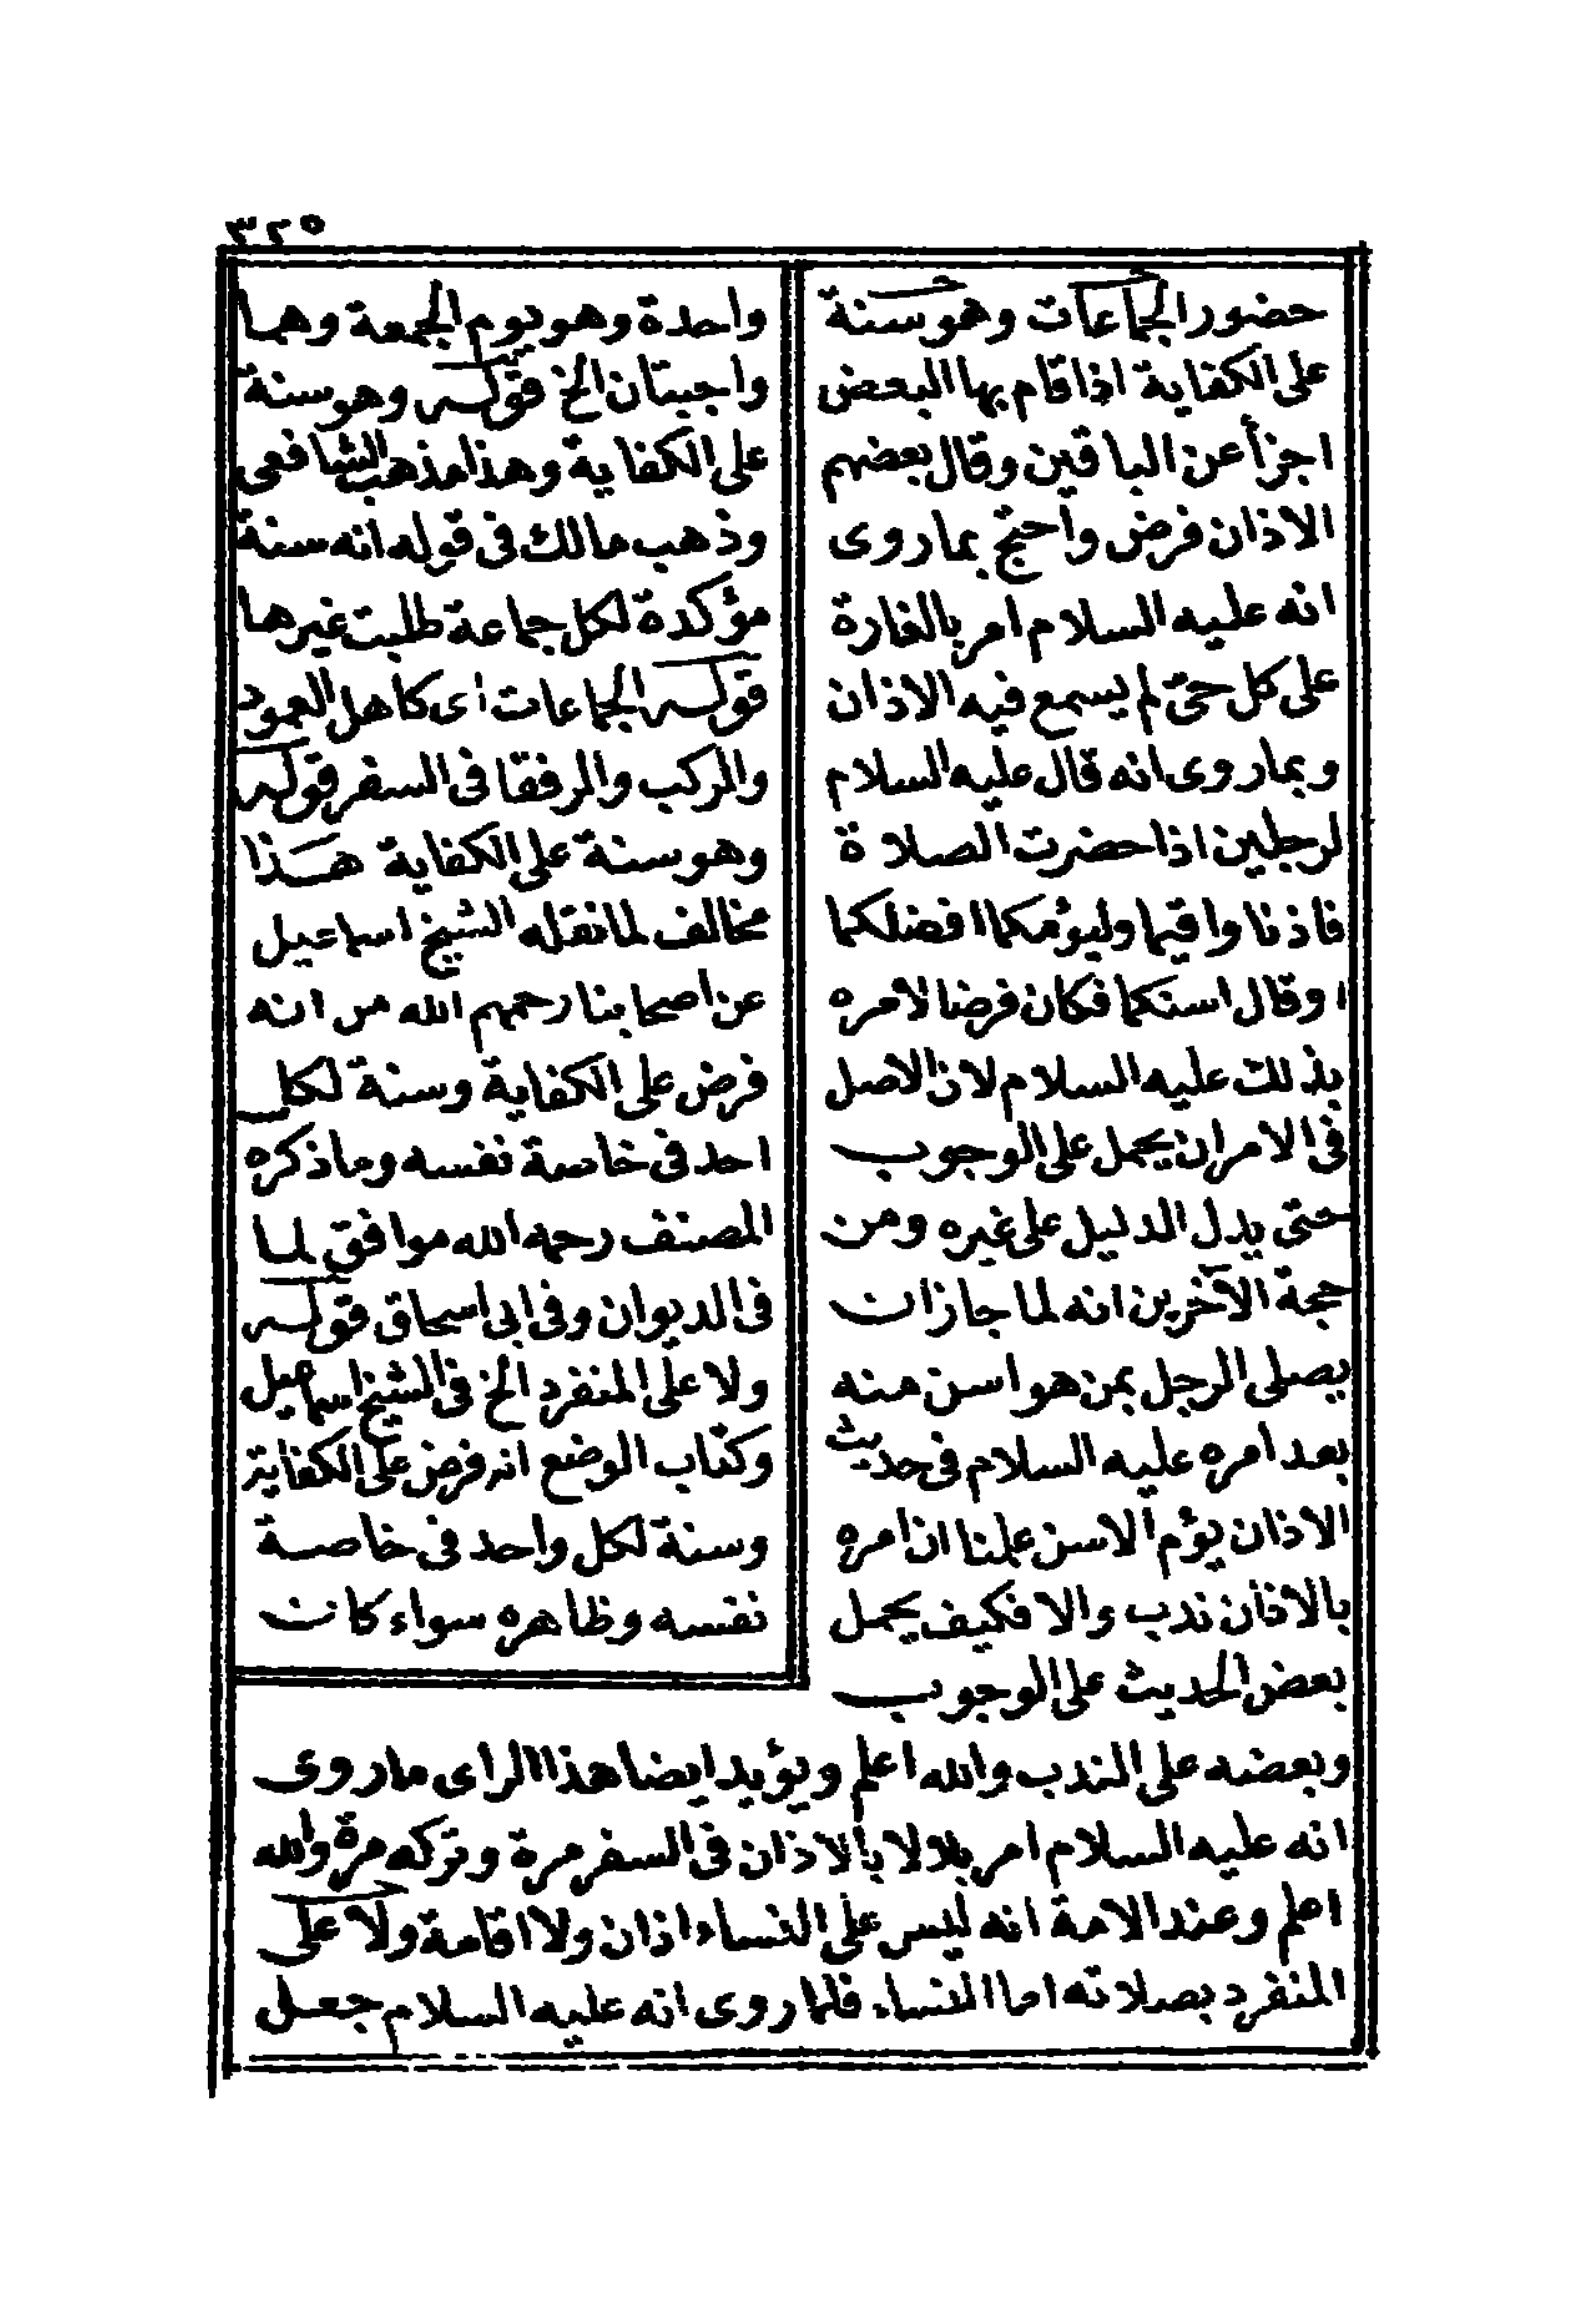 ٣٢٥
حضور الجماعات وهو سنة
على الكفاية اذا قام بها البعض
اجزأ عن الباقين وقال بعضهم
الاذان فرض واحتج بما روى
انه عليه السلام امر بالغارة
على كل حتى لم يسمع فيه الاذان
وبما روى انه قال عليه السلام
لرجلين اذا حضرت الصلاة
فاذنا واقيما وليؤمكما افضلكما
او قال اسنكما فكان فرضا لامره
بذلك عليه السلام لان الاصل
فى الامر ان يحمل على الوجوب
حتى يدل الدليل على غيره ومن
حجة الآخرين انه لما جاز ان
يصلى الرجل بمن هو اسن منه
بعد امره عليه السلام فى حديث
الاذان يؤم الاسن علمنا ان امره
بالاذان ندب والا فكيف يحمل
بعض الحديث على الوجوب
وبعضه على الندب والله اعلم ويؤيد ايضا هذا الراى ما روى
انه عليه السلام امر بلالا بالاذان فى السفر مرة وتركه مرة والله
اعلم وعند الامة انه ليس على النساء اذان ولا اقامة ولا على
المنفرد بصلاته اما النساء فلما روى انه عليه السلام جعل
واحدة وهو يوم الجمعة وهما
واجبتان الخ قوله وهو سنة
على الكفاية وهذا مذهب الشافعى
وذهب مالك فى قوله انه سنة
مؤكدة لكل جماعة طلبت غيرها
قوله الجماعات اى كاهل العمود
والركب والرفقا فى السفر قوله
وهو سنة على الكفاية هذا
مخالف لما نقله الشيخ اسماعيل
عن اصحابنا رحمهم الله من انه
فرض على الكفاية وسنة لكل
احد فى خاصة نفسه وما ذكره
المصنف رحمه الله موافق لما
فى الديوان وفى ابى اسحاق قوله
ولا على المنفرد الخ فى الشيخ اسماعيل
وكتاب الوضع انه فرض على الكفاية
وسنة لكل واحد فى خاصة
نفسه وظاهره سواء كانت